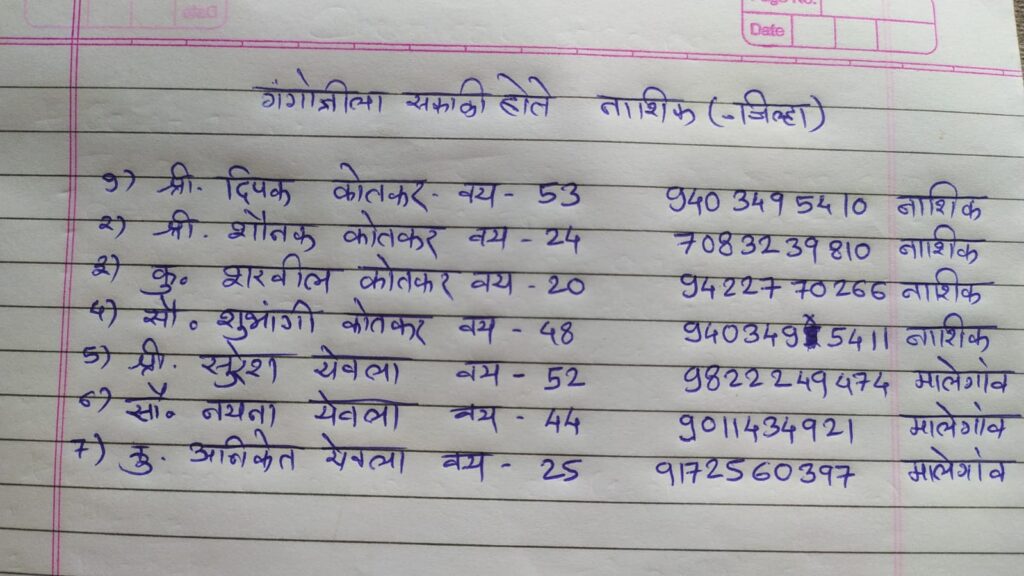 Page No.
Date
Date
गंगोत्रीला सकाळी होते नाशिक (-जिल्हा)
१) श्री. दिपक कोतकर- वय - 53 940 349 5410 नाशिक
२) श्री. शौनक कोतकर वय - 24 7083239810 नाशिक
३) कु. शरवील कोतकर वय - 20 94227 70266 नाशिक
४) सौ. शुभांगी कोतकर वय - 48 940349 5411 नाशिक
5) श्री. सुरेश येवला वय - 52 9822249474 मालेगांव
६) सौ. नयना येवला वय - 44 9011434921 मालेगांव
7) कु. अनिकेत येवला वय - 25 9172560397 मालेगांव